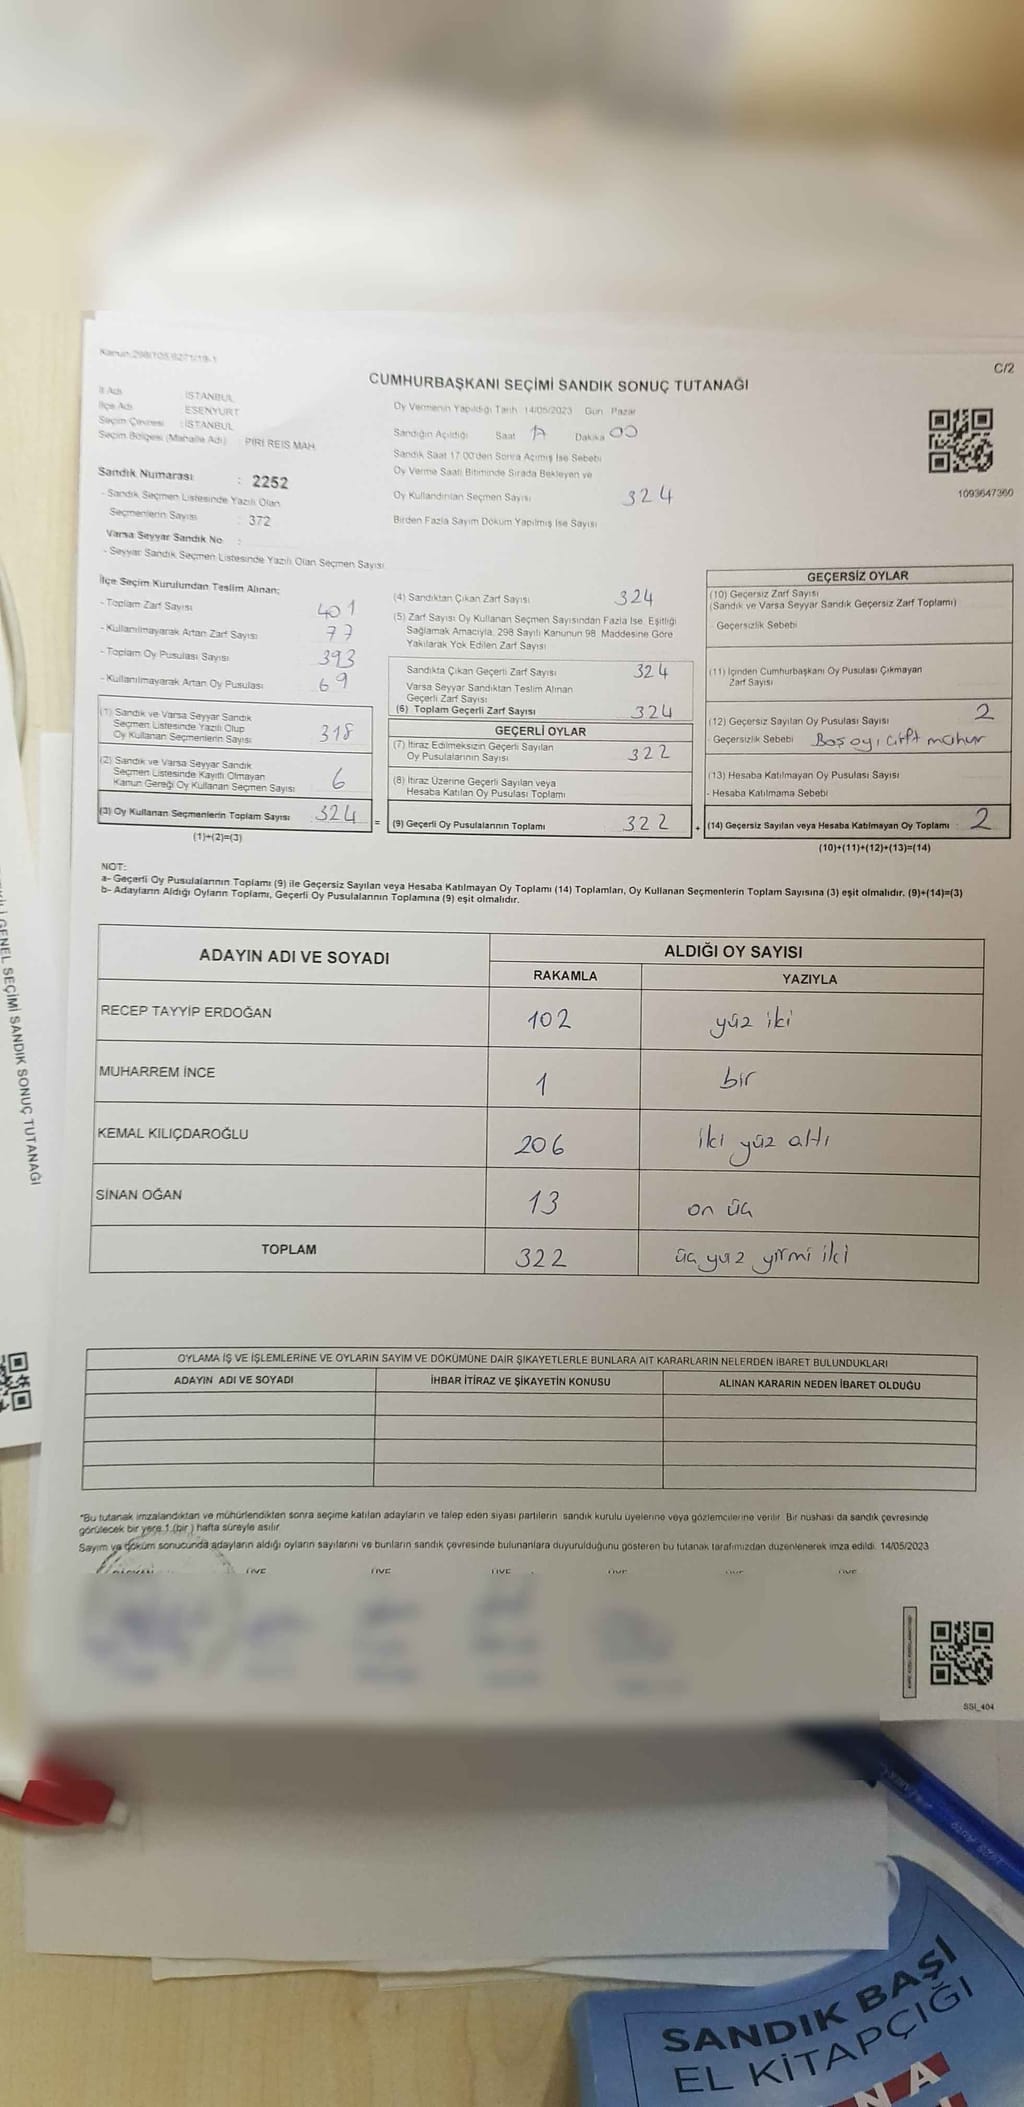 Kanun:298/105,6271/19-1
C/2
CUMHURBAŞKANI SEÇİMİ SANDIK SONUÇ TUTANAĞI
İl Adı : İSTANBUL
İlçe Adı : ESENYURT
Seçim Çevresi : İSTANBUL
Seçim Bölgesi (Mahalle Adı) : PİRİ REİS MAH.
Sandık Numarası : 2252
- Sandık Seçmen Listesinde Yazılı Olan
Seçmenlerin Sayısı : 372
Varsa Seyyar Sandık No :
- Seyyar Sandık Seçmen Listesinde Yazılı Olan Seçmen Sayısı
Oy Vermenin Yapıldığı Tarih 14/05/2023 Gün Pazar
Sandığın Açıldığı Saat 17 Dakika 00
Sandık Saat 17:00'den Sonra Açılmış İse Sebebi
Oy Verme Saati Bitiminde Sırada Bekleyen ve
Oy Kullandırılan Seçmen Sayısı 324
Birden Fazla Sayım Döküm Yapılmış İse Sayısı
1093647360
İlçe Seçim Kurulundan Teslim Alınan;
- Toplam Zarf Sayısı 401
- Kullanılmayarak Artan Zarf Sayısı 77
- Toplam Oy Pusulası Sayısı 393
- Kullanılmayarak Artan Oy Pusulası 69
(1) Sandık ve Varsa Seyyar Sandık
Seçmen Listesinde Yazılı Olup
Oy Kullanan Seçmenlerin Sayısı 318
(2) Sandık ve Varsa Seyyar Sandık
Seçmen Listesinde Kayıtlı Olmayan
Kanun Gereği Oy Kullanan Seçmen Sayısı 6
(3) Oy Kullanan Seçmenlerin Toplam Sayısı 324
(1)+(2)=(3)
(4) Sandıktan Çıkan Zarf Sayısı 324
(5) Zarf Sayısı Oy Kullanan Seçmen Sayısından Fazla İse, Eşitliği
Sağlamak Amacıyla, 298 Sayılı Kanunun 98. Maddesine Göre
Yakılarak Yok Edilen Zarf Sayısı
Sandıkta Çıkan Geçerli Zarf Sayısı 324
Varsa Seyyar Sandıktan Teslim Alınan
Geçerli Zarf Sayısı
(6) Toplam Geçerli Zarf Sayısı 324
GEÇERLİ OYLAR
(7) İtiraz Edilmeksizin Geçerli Sayılan
Oy Pusulalarının Sayısı 322
(8) İtiraz Üzerine Geçerli Sayılan veya
Hesaba Katılan Oy Pusulası Toplamı
= (9) Geçerli Oy Pusulalarının Toplamı 322
GEÇERSİZ OYLAR
(10) Geçersiz Zarf Sayısı
(Sandık ve Varsa Seyyar Sandık Geçersiz Zarf Toplamı)
- Geçersizlik Sebebi
(11) İçinden Cumhurbaşkanı Oy Pusulası Çıkmayan
Zarf Sayısı
(12) Geçersiz Sayılan Oy Pusulası Sayısı 2
- Geçersizlik Sebebi Boş oy, çift mühür
(13) Hesaba Katılmayan Oy Pusulası Sayısı
- Hesaba Katılmama Sebebi
+ (14) Geçersiz Sayılan veya Hesaba Katılmayan Oy Toplamı : 2
(10)+(11)+(12)+(13)=(14)
NOT:
a- Geçerli Oy Pusulalarının Toplamı (9) ile Geçersiz Sayılan veya Hesaba Katılmayan Oy Toplamı (14) Toplamları, Oy Kullanan Seçmenlerin Toplam Sayısına (3) eşit olmalıdır. (9)+(14)=(3)
b- Adayların Aldığı Oyların Toplamı, Geçerli Oy Pusulalarının Toplamına (9) eşit olmalıdır.
ADAYIN ADI VE SOYADI ALDIĞI OY SAYISI
RAKAMLA YAZIYLA
RECEP TAYYİP ERDOĞAN 102 yüz iki
MUHARREM İNCE 1 bir
KEMAL KILIÇDAROĞLU 206 iki yüz altı
SİNAN OĞAN 13 on üç
TOPLAM 322 üç yüz yirmi iki
OYLAMA İŞ VE İŞLEMLERİNE VE OYLARIN SAYIM VE DÖKÜMÜNE DAİR ŞİKAYETLERLE BUNLARA AİT KARARLARIN NELERDEN İBARET BULUNDUKLARI
ADAYIN ADI VE SOYADI İHBAR İTİRAZ VE ŞİKAYETİN KONUSU ALINAN KARARIN NEDEN İBARET OLDUĞU
*Bu tutanak imzalandıktan ve mühürlendikten sonra seçime katılan adayların ve talep eden siyasi partilerin sandık kurulu üyelerine veya gözlemcilerine verilir. Bir nüshası da sandık çevresinde
görülecek bir yere 1 (bir) hafta süreyle asılır.
Sayım ve döküm sonucunda adayların aldığı oyların sayılarını ve bunların sandık çevresinde bulunanlara duyurulduğunu gösteren bu tutanak tarafımızdan düzenlenerek imza edildi. 14/05/2023
SSİ_404
GENEL SEÇİMİ SANDIK SONUÇ TUTANAĞI
SANDIK BAŞI
EL KİTAPÇIĞI